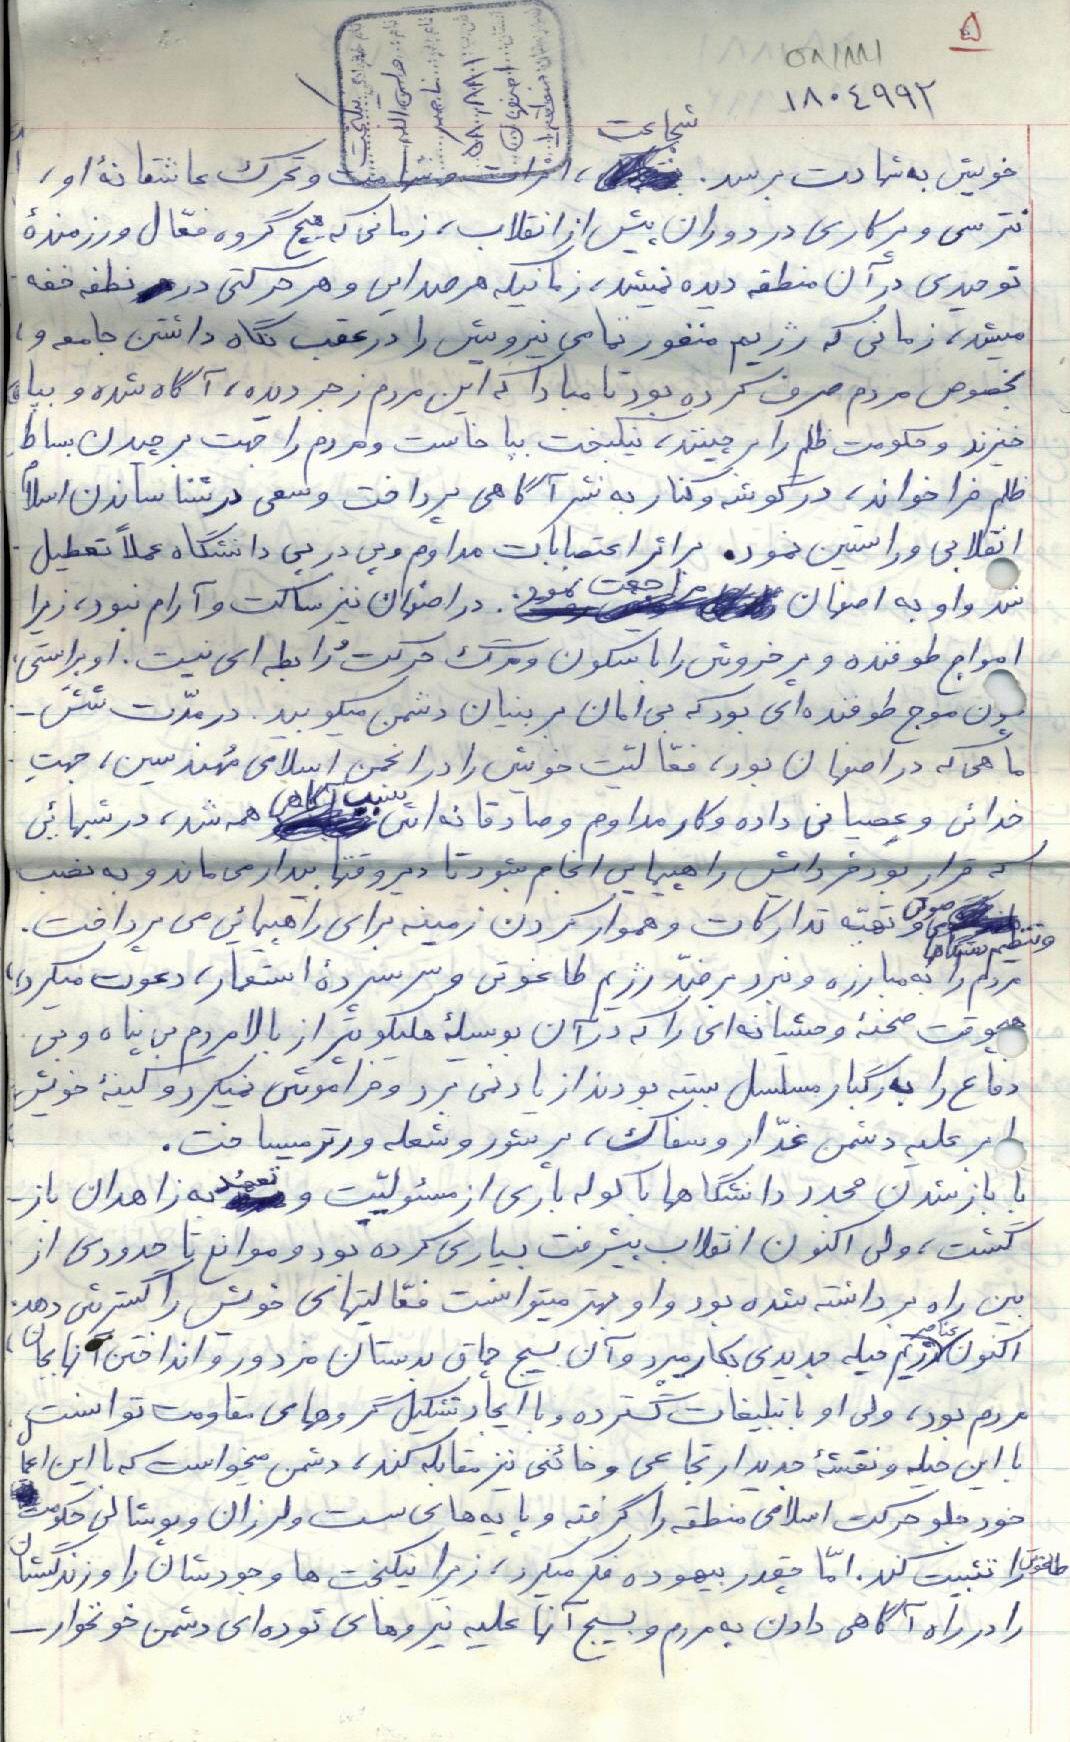 ۵
۵۸/۱۸۸۱
۱۸۰۴۹۹۲
شجاعت
خویش به شهادت برسد. ، اثرات و شهامت و تحرک عاشقانهٔ او،
نترسی و پرکاری در دوران پیش از انقلاب، زمانی که هیچ گروه فعّال و رزمندهٔ
توحیدی در آن منطقه دیده نمیشد، زمانیکه هر صدایی و هر حرکتی در نطفه خفه
میشد، زمانی که رژیم منفور تمامی نیرویش را در عقب نگاه داشتن جامعه و
بخصوص مردم صرف کرده بود تا مبادا که این مردم زجر دیده، آگاه شده و بپا
خیزند و حکومت ظلم را بر چینند، نیکبخت بپا خاست و مردم را جهت بر چیدن بساط
ظلم فرا خواند، در گوشه و کنار به نشر آگاهی پرداخت و سعی در شناساندن اسلام
انقلابی و راستین نمود. بر اثر اعتصابات مداوم و پی در پی دانشگاه عملاً تعطیل
شد و او به اصفهان مراجعت نمود. در اصفهان نیز ساکت و آرام نبود، زیرا
امواج طوفنده و پر خروش را با سکون و مرگ حرکت رابطه ای نیست. او براستی
چون موج طوفنده‌ای بود که بی امان بر بنیان دشمن میکوبید. در مدّت شش -
ماهی که در اصفهان بود، فعّالیّت خویش را در انجمن اسلامی مهندسین، جهتِ
خدائی و عصیانی داده و کار مداوم و صادقانه اش سبب آگاهی همه شد، در شبهائی
که قرار بود فردایش راهپیمایی انجام شود تا دیر وقتها بیدار می ماند و به نصب
صوتی و تهیّه تدارکات و هموار کردن زمینه برای راهپیمائی می پرداخت.
و تنظیم دستگاها
مردم را به مبارزه و نبرد بر ضدّ رژیم طاغوتی و سر سپردهٔ استعمار، دعوت میکرد،
هیچوقت صحنهٔ وحشیانه‌ای را که در آن بوسیلهٔ هلیکوپتر از بالا مردم بی پناه و بی
دفاع را به رگبار مسلسل بسته بودند از یاد نمی برد و فراموش نمیکرد و کینهٔ خویش
را بر علیه دشمن غدّار و سفاک، پر شور و شعله ورتر میساخت.
با باز شدن مجدد دانشگاها با کوله باری از مسئولیّت و تعهّد به زاهدان باز-
گشت، ولی اکنون انقلاب پیشرفت بسیاری کرده بود و موانع تا حدودی از
بین راه برداشته شده بود و او بهتر میتوانست فعّالیتهای خویش را گسترش دهد.
اکنون رژیم حیله جدیدی بکار میبرد و آن بسیج چماق بدستان مزدور و انداختن آنها بجان
مردم بود، ولی او با تبلیغات گسترده و با ایجاد تشکیل گروههای مقاومت توانست
با این حیله و نقشهٔ جدید ارتجاعی و خائنی نیز مقابله کند، دشمن میخواست که با این اعمال
خود جلو حرکت اسلامی منطقه را گرفته و پایه های سست و لرزان و پوشالی حکومت
طاغوتی را تثبیت کند. امّا چقدر بیهوده فکر میکرد، زیرا نیکبخت ها وجودشان را و زندگیشان
را در راه آگاهی دادن به مردم و بسیج آنها علیه نیروهای توده‌ای دشمن خونخوار -